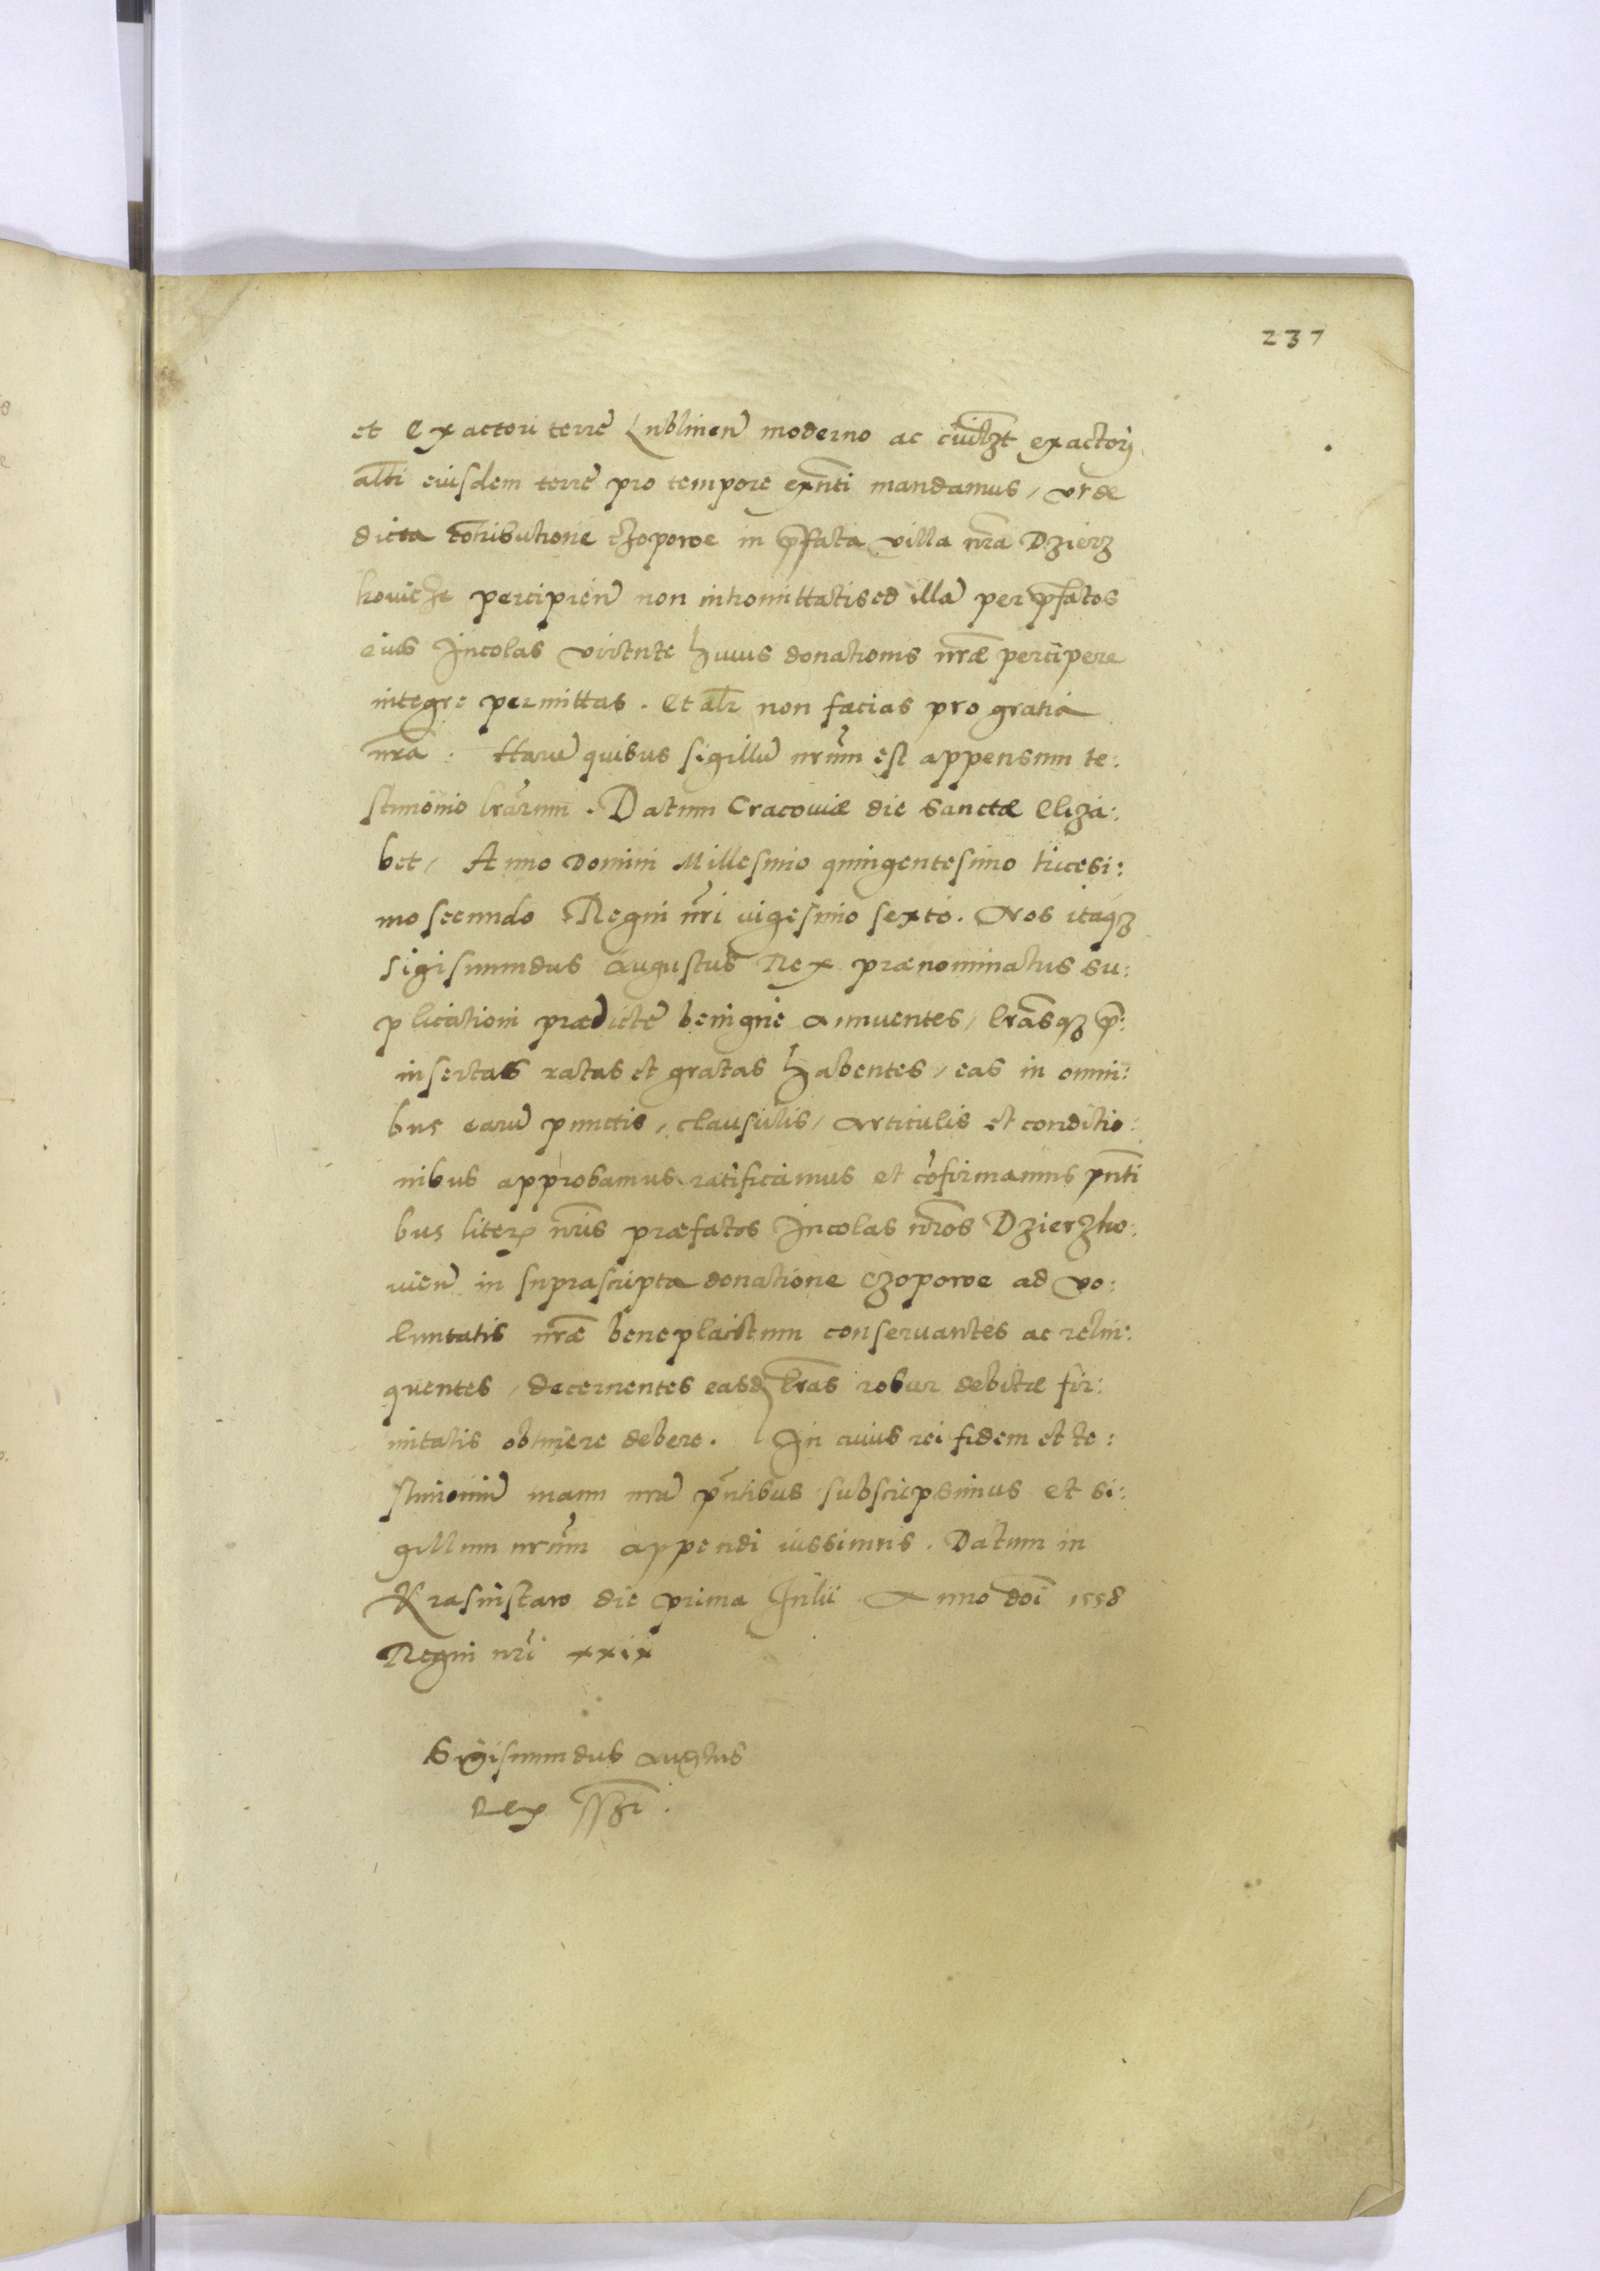 237
et Exactori terrē Lublineñ moderno ac cuiłzt exactorj
alti eiusdem terrē pro tempore exnti mandamus, vt de
dicta cōtributione czopowe in p̄fata villa nr̄a Dzierz
kovicze percipieñ non intromittatis ed illā per p̄fatos
eius Incolas virtute huius donationis nr̄æ percipere
integre permittas. Et alr̄ non facias pro gratia
nr̄a. Harū quibus sigillū nr̄um est appensum te:
stimonio lr̄arum. Datum Cracoviæ die Sanctæ Eliza:
bet, Anno Domini Millesimo quingentesimo tricesi:
mo secundo Regni nr̄i vigesimo sexto. Nos itaqȝ
Sigismundus Augustus Rex prænominatus su:
plicationi prædictę benigne annuentes, lr̄asqȝ p̄:
insertas ratas et gratas habentes, eas in omni:
bus earū punctis, clausulis, articulis et conditio:
nibus approbamus ratificamus et cōfirmamus pn̄ti
bus literꝭ nr̄is præfatos Incolas nr̄os Dzierzko:
vieñ in suprascripta donatione Czopowe ad vo:
luntatis nr̄æ beneplacitum conservantes ac relin:
quentes, decernentes easdꝫ lr̄as robur debitæ fir:
mitatis obtinere debere. In cuius rei fidem et te:
stimoniū manu nr̄a pn̄tibus subscripsimus et si:
gillum nr̄um appendi iussimus. Datum in
Krasnistaw die prima Julii Anno doī 1558
Regni nr̄i xxix
Sigismundus Augtus
Rex